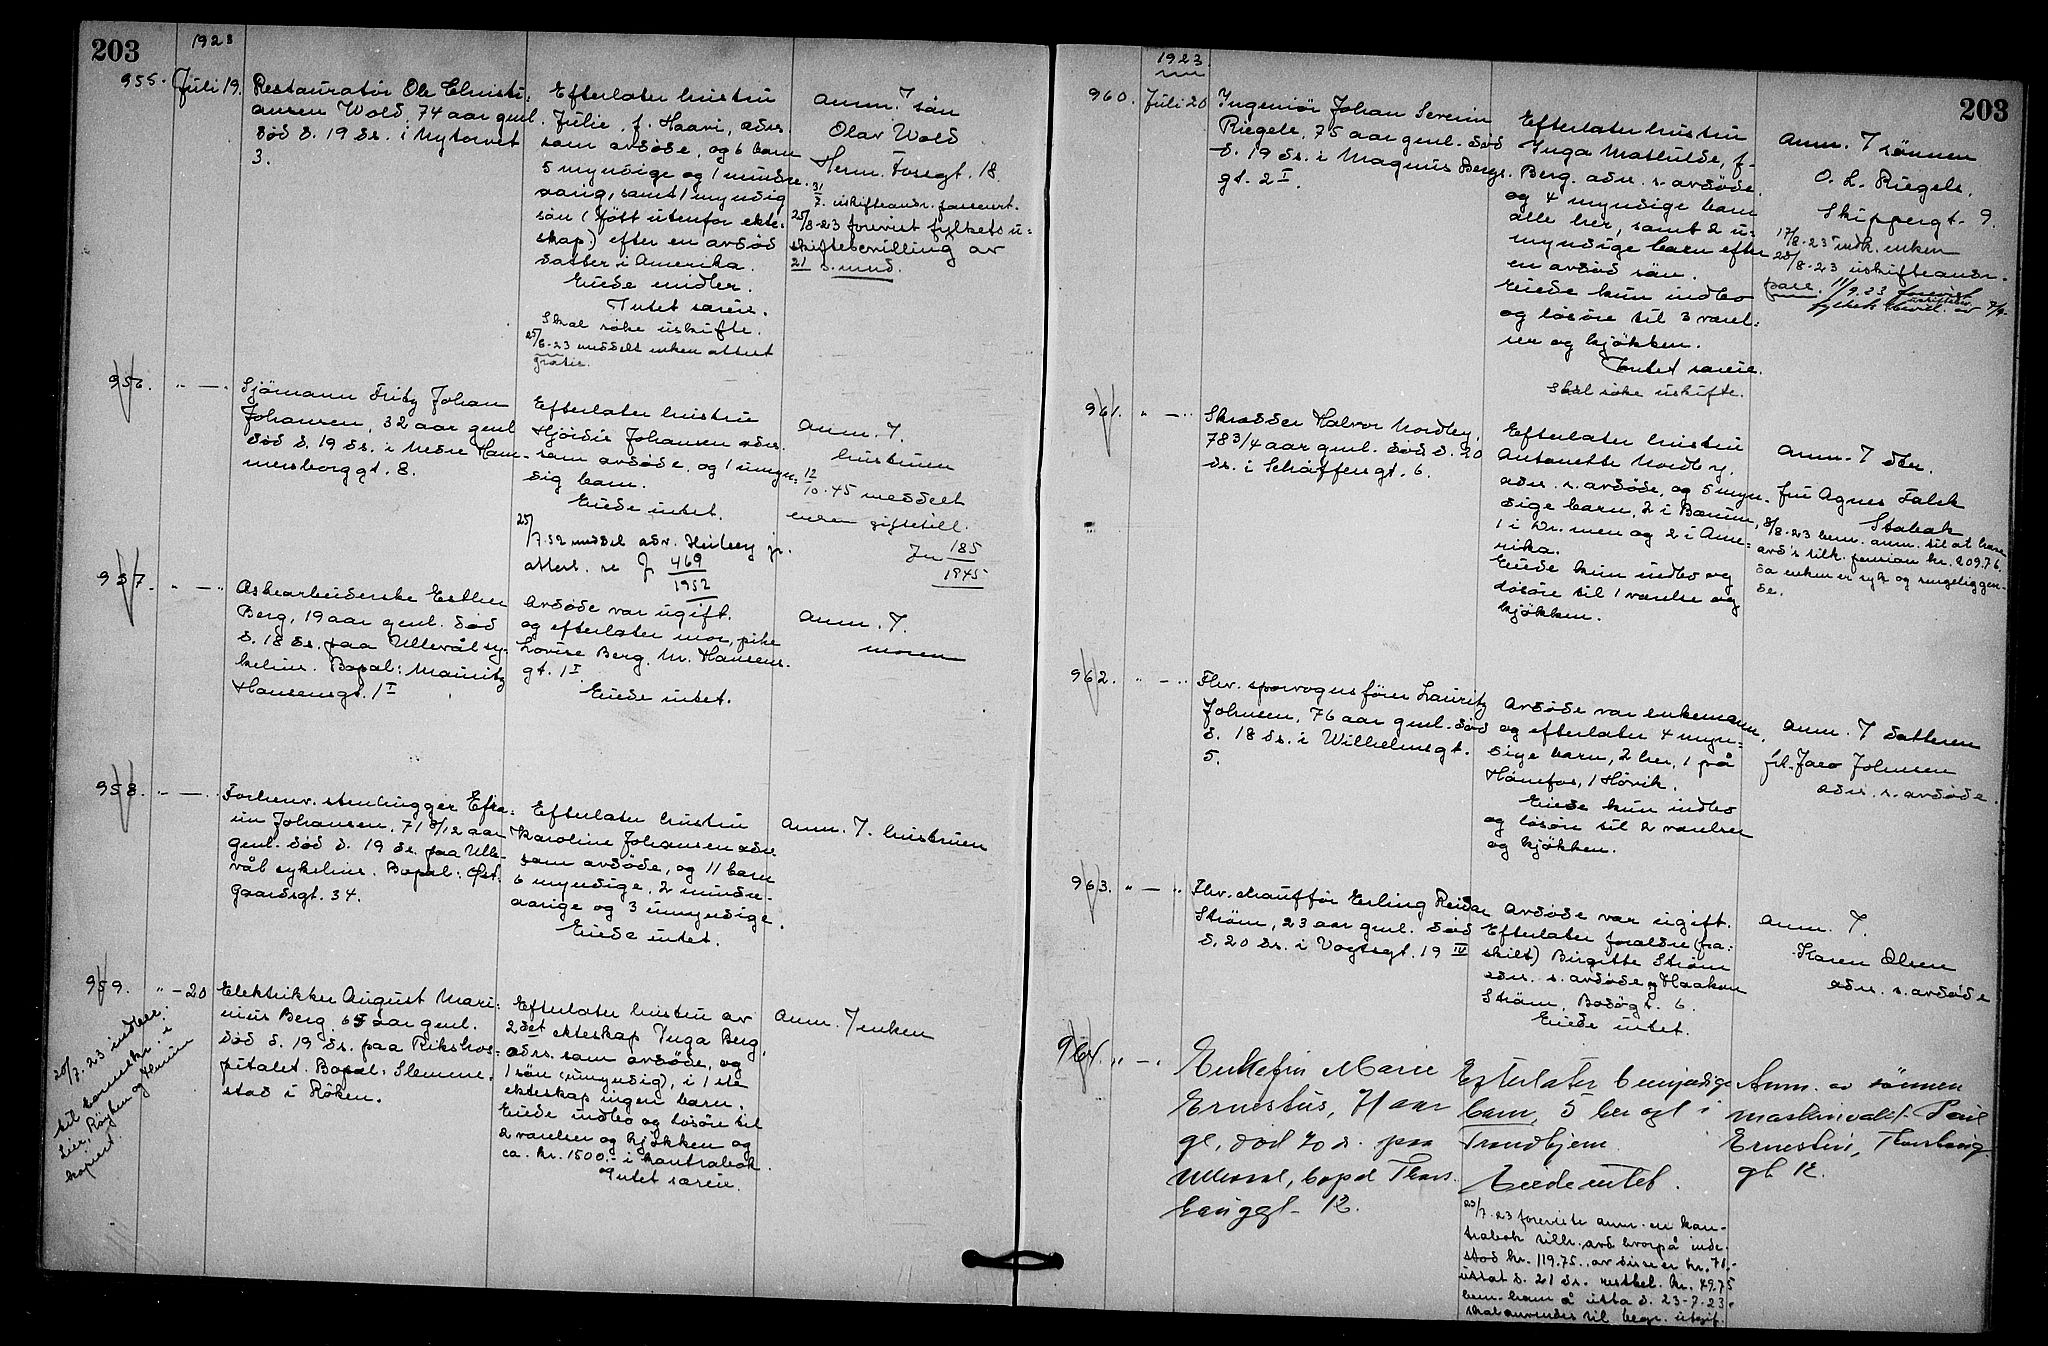 203
1923
955. Juli 19.
Restauratör Ole Christi-
ansen Wold, 74 aar gml.
död d. 19 ds. i Nytorvet
3.
Efterlater hustru
Julie, f. Haavi, adr.
som avdöde, og 6 barn
5 myndige og 1 mindre-
aarig, samt 1 myndig
sön (född utenfor ekte-
skap) efter en avdöd
datter i Amerika.
Eiede midler.
Intet særeie.
Skal söke uskifte.
25/8-23 meddelt enken attest
gratis.
Anm. J sön
Olav Wold
Herm. Fossgt. 18.
31/7. uskifteandr. passert.
25/8-23 forevist fylkets u-
skiftebevilling av
21 d. mnd.
956. " — "
Sjömann Fritz Johan
Johansen, 32 aar gml
död d. 19 ds. i Nedre Ham-
mersborggt. 8.
Efterlater hustru
Hjördis Johansen adr.
som avdöde, og 1 umyn-
dig barn.
Eiede intet.
25/7.52 meddel adv. Heiberg jr.
attest. se J 469
1952
Anm. J.
hustruen
12/10.45 meddelt
enken giftetill.
Jn 185
1945
957. " — "
Askearbeiderske Esther
Berg, 19 aar gml. död
d. 18 ds. paa Ullevål sy-
kehus. Bopæl: Mauritz
Hansensgt. 1 I
Avdöde var ugift.
og efterlater mor, pike
Lovise Berg, M. Hansens-
gt. 1 I
Eiede intet.
Anm. J.
moren
958. " — "
Forhenv. stenhugger Efra-
im Johansen, 71 8/12 aar
gml. död d. 19 ds. paa Ulle-
vål sykehus. Bopæl: Öst-
gaardsgt. 34.
Efterlater hustru
Karoline Johansen adr
som avdöde, og 11 barn
6 myndige, 2 mindre-
aarige og 3 umyndige.
Eiede intet.
Anm. J. hustruen
959. " — 20
Elektrikker August Mari-
nius Berg, 65 aar gml.
död d. 19 ds. paa Rikshos-
pitalet. Bopæl: Slemme-
stad i Röken.
Efterlater hustru av
2det ekteskap Inga Berg,
adr. som avdöde, og
1 sön (umyndig), i 1ste
ekteskap ingen barn.
Eiede indbo og lösöre til
2 værelser og kjökken og
ca. kr. 1500.- i kontrabok.
Intet særeie.
Anm. J enken
20/7-23 indber.
til sorenskr. i
Lier, Röyken og Hurum
kopiert.
203
1923
960. Juli 20
Ingeniör Johan Severin
Riegels, 75 aar gml. död
d. 19 ds. i Magnus Bergs-
gt. 2 I.
Efterlater hustru
Inga Mathilde, f.
Berg. adr. s. avdöde.
og 4 myndige barn
alle her, samt 2 u-
myndige barn efter
en avdöd sön.
Eiede kun indbo
og lösöre til 3 værel-
ser og kjökken.
Intet særeie.
Skal söke uskifte.
Anm. J sönnen
O. L. Riegels,
Skippergt. 9.
17/8-23 indk. enken
25/8-23 uskifteandr.
pass. 11/9.23 forevist
fylkets uskiftebevil. av 7/9.
961. " — "
Skrædder Halvor Nordby,
78 3/4 aar gml. död d. 20
ds. i Schäffersgt. 6.
Efterlater hustru
Antonette Nordby,
adr. s. avdöde, og 5 myn-
dige barn, 2 i Bærum,
1 i Dr.men og 2 i Ame-
rika.
Eiede kun indbo og
lösöre til 1 værelse og
kjökken.
Anm. J dtr.
fru Agnes Falck
Stabæk
8/8-23 bem. anm. til at hæve
avd's tilk. pension kr. 209.76.
da enken er syk og sengeliggen-
de.
962. " — "
Fhv. sporvognsförer Lauritz
Johnsen, 76 aar gml. död
d. 18 ds. i Wilhelmsgt.
5.
Avdöde var enkemann,
og efterlater 4 myn-
dige barn, 2 her, 1 på
Hönefos, 1 Hövik.
Eiede kun indbo
og lösöre til 2 værelser
og kjökken.
Anm. J datteren
frk. Johnsen
adr. s. avdöde.
963. " — "
Fhv. chaufför Erling Reidar
Ström, 23 aar gml. död
d. 20 ds. i Vogtsgt. 19 IV
Avdöde var ugift.
Efterlater forældre (fra-
skilt) Birgitte Ström
adr. s. avdöde og Haakon
Ström, Bodögt. 6.
Eiede intet.
Anm. J.
Karen Olsen
adr. s. avdöde
964. " — "
Enkefru Marie
Ernestus, 71 aar
gl, död 20 d. paa
Ullevaal, bopæl Thors-
hauggt. 12.
Efterlater 6 myndige
barn, 5 her og 1 i
Trondhjem.
Eiede intet.
23/7-23 foreviste anm. en kon-
trabok tilh. avd hvorpå inde-
stod kr. 119.75. av disse er kr. 70.-
uttat d. 21 ds. restbel. kr. 49.75
bem. ham å utta d. 23-7-23-
skal anvendes til begr. utgif.
Anm. av sönnen
maskinvakt. Paul
Ernestus, Thorshaug
gt 12.